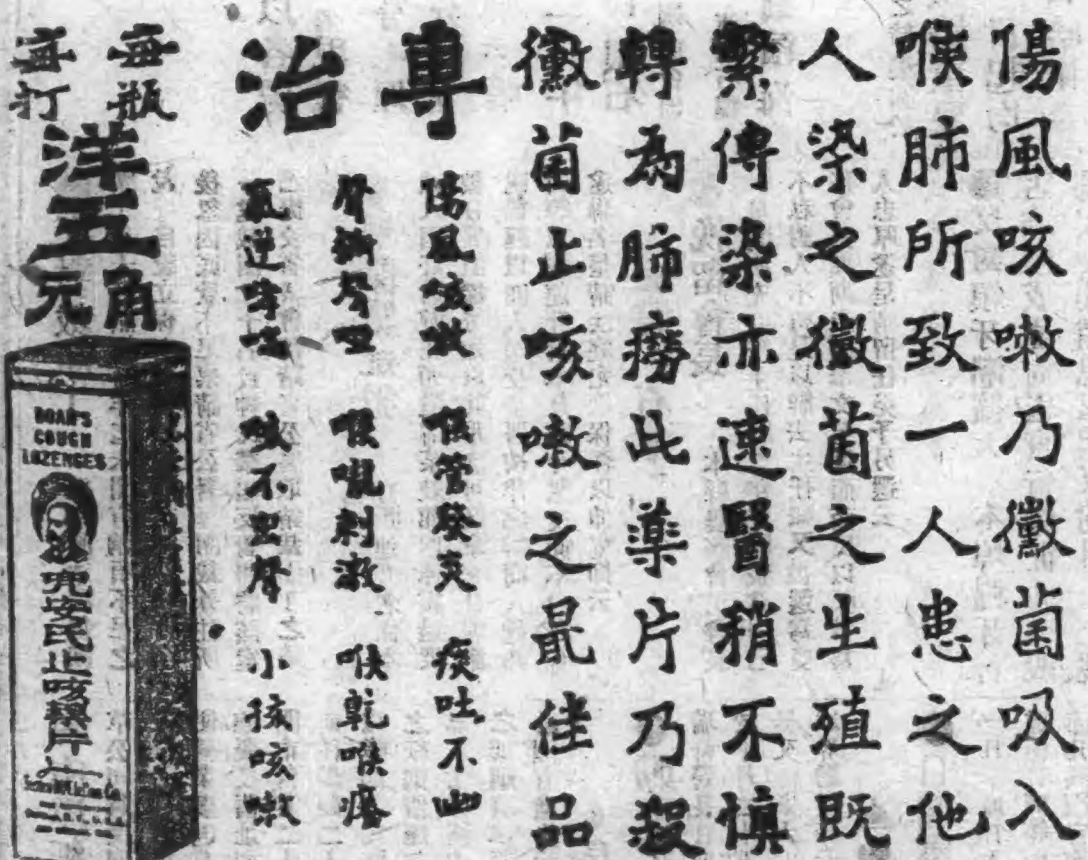 傷風咳嗽乃黴菌吸入
喉肺所致一人患之他
人染之黴菌之生殖既
繁傳染亦速醫稍不慎
轉為肺癆此藥片乃殺
黴菌止咳嗽之最佳品
專治
傷風咳嗽 喉管發炎 痰吐不出
聲嘶聲啞 喉嚨刺激 喉乾喉癢
氣逆哮喘 咳不出聲 小孩咳嗽
每瓶 每打
洋
五
角 元
DOAN'S
COUGH
LOZENGES
兜安氏止咳藥片